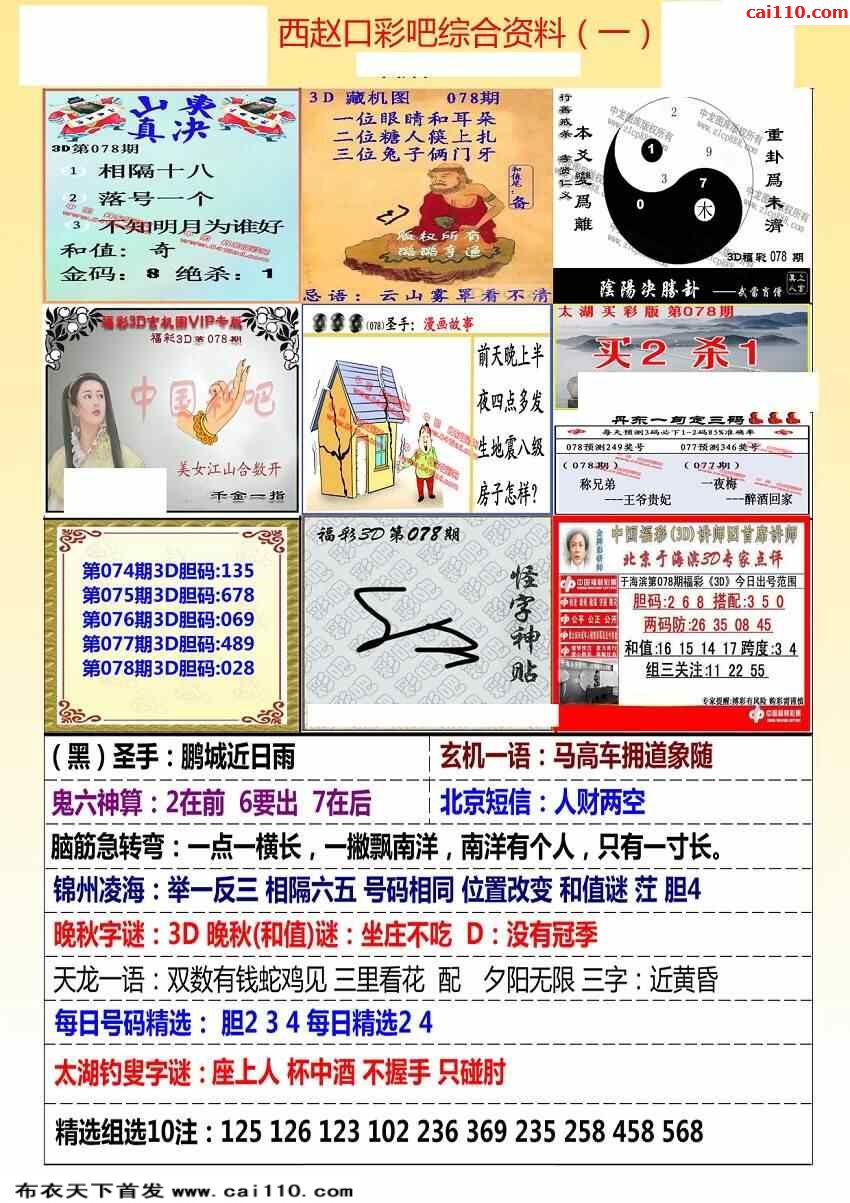 cai110.com
西赵口彩吧综合资料（一）
山東
真决
3D第078期
1 相隔十八
2 落号一个
3 不知明月为谁好
和值：奇
金码：8 绝杀：1
3D 藏机图 078期
一位眼睛和耳朵
二位糖人筷上扎
三位兔子俩门牙
和值笔：备
版权所有
忌语：云山雾罩看不清
本爻變爲離
重卦爲未濟
2
1
9
3
7
0
木
3D福彩 078 期
陰陽决勝卦 ——武當肖僧
福彩3D玄机图VIP专版
福彩3D第078期
中国彩吧
美女江山合数开
千金一指
(078)圣手：漫画故事
前天晚上半
夜四点多发
生地震八级
房子怎样?
太湖买彩版 第078期
买2 杀1
丹东一句定三码
每天预测3码必下1-2码85%准确率
078预测249奖号 077预测346奖号
（078期） （077期）
称兄弟 一夜梅
——王爷贵妃 ——醉酒回家
第074期3D胆码:135
第075期3D胆码:678
第076期3D胆码:069
第077期3D胆码:489
第078期3D胆码:028
福彩3D第078期
怪字神贴
中国福彩(3D)讲师团首席讲师
北京于海滨3D专家点评
于海滨第078期福彩《3D》今日出号范围
胆码:2 6 8 搭配:3 5 0
两码防:26 35 08 45
和值:16 15 14 17 跨度:3 4
组三关注:11 22 55
专家提醒:博彩有风险 购彩需谨慎
中国福利彩票
（黑）圣手：鹏城近日雨
玄机一语：马高车拥道象随
鬼六神算：2在前 6要出 7在后
北京短信：人财两空
脑筋急转弯：一点一横长，一撇飘南洋，南洋有个人，只有一寸长。
锦州凌海：举一反三 相隔六五 号码相同 位置改变 和值谜 茳 胆4
晚秋字谜：3D 晚秋(和值)谜：坐庄不吃 D：没有冠季
天龙一语：双数有钱蛇鸡见 三里看花 配 夕阳无限 三字：近黄昏
每日号码精选： 胆2 3 4 每日精选2 4
太湖钓叟字谜：座上人 杯中酒 不握手 只碰肘
精选组选10注：125 126 123 102 236 369 235 258 458 568
布衣天下首发 www.cai110.com